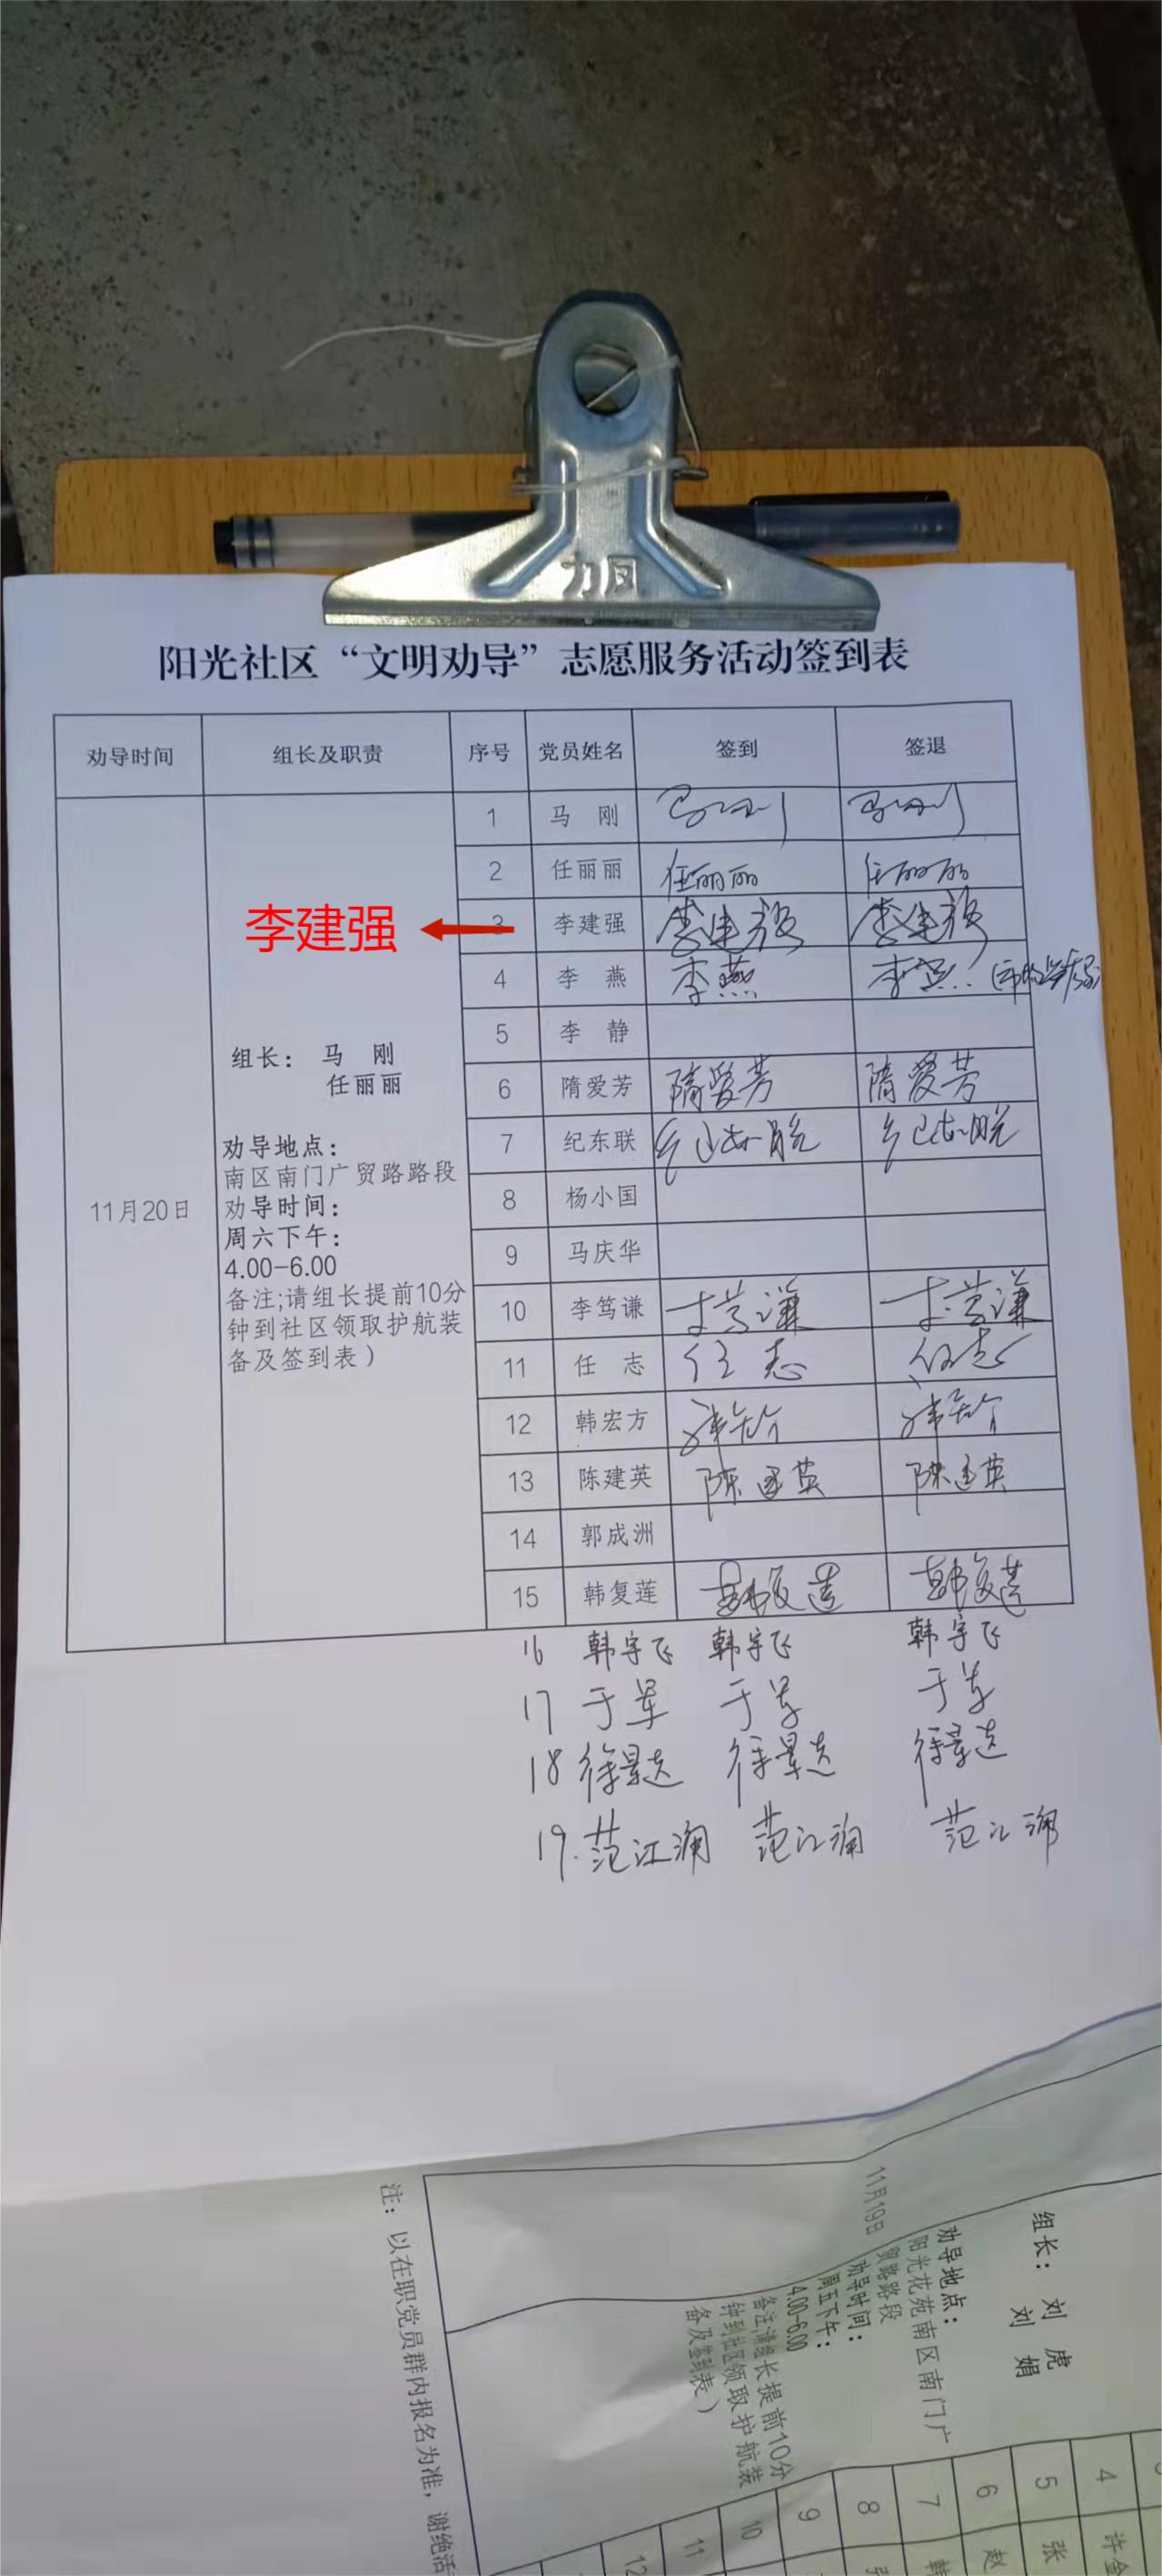 力风
阳光社区“文明劝导”志愿服务活动签到表
劝导时间 组长及职责 序号 党员姓名 签到 签退
11月20日
李建强
组长： 马 刚
任丽丽
劝导地点：
南区南门广贸路路段
劝导时间：
周六下午：
4.00-6.00
备注;请组长提前10分
钟到社区领取护航装
备及签到表）
1 马 刚 马刚 马刚
2 任丽丽 任丽丽 任丽丽
3 李建强 李建强 李建强
4 李 燕 李燕 李燕
5 李 静
6 隋爱芳 隋爱芳 隋爱芳
7 纪东联 纪东联 纪东联
8 杨小国
9 马庆华
10 李笃谦 李笃谦 李笃谦
11 任 志 任志 任志
12 韩宏方 韩宏方 韩宏方
13 陈建英 陈建英 陈建英
14 郭成洲
15 韩复莲 韩复莲 韩复莲
16 韩宇飞 韩宇飞 韩宇飞
17 于军 于军 于军
18 徐景达 徐景达 徐景达
19. 范江澜 范江澜 范江澜
注：以在职党员群内报名为准，谢绝活
11月19日
组长： 刘 虎
刘 娟
劝导地点：
阳光花苑南区南门广
贸路路段
劝导时间：
周五下午：
4.00-6.00
备注;请组长提前10分
钟到社区领取护航装
备及签到表）
4 许
5 张
6 赵
7 韩
8
9
10
11
12